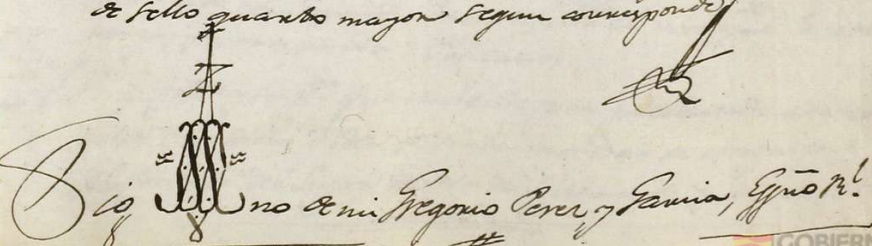 de sello quarto mayor segun corresponde
Sig no de mi Gregorio Perez y Garcia, Essño Rl.
GOBIERN